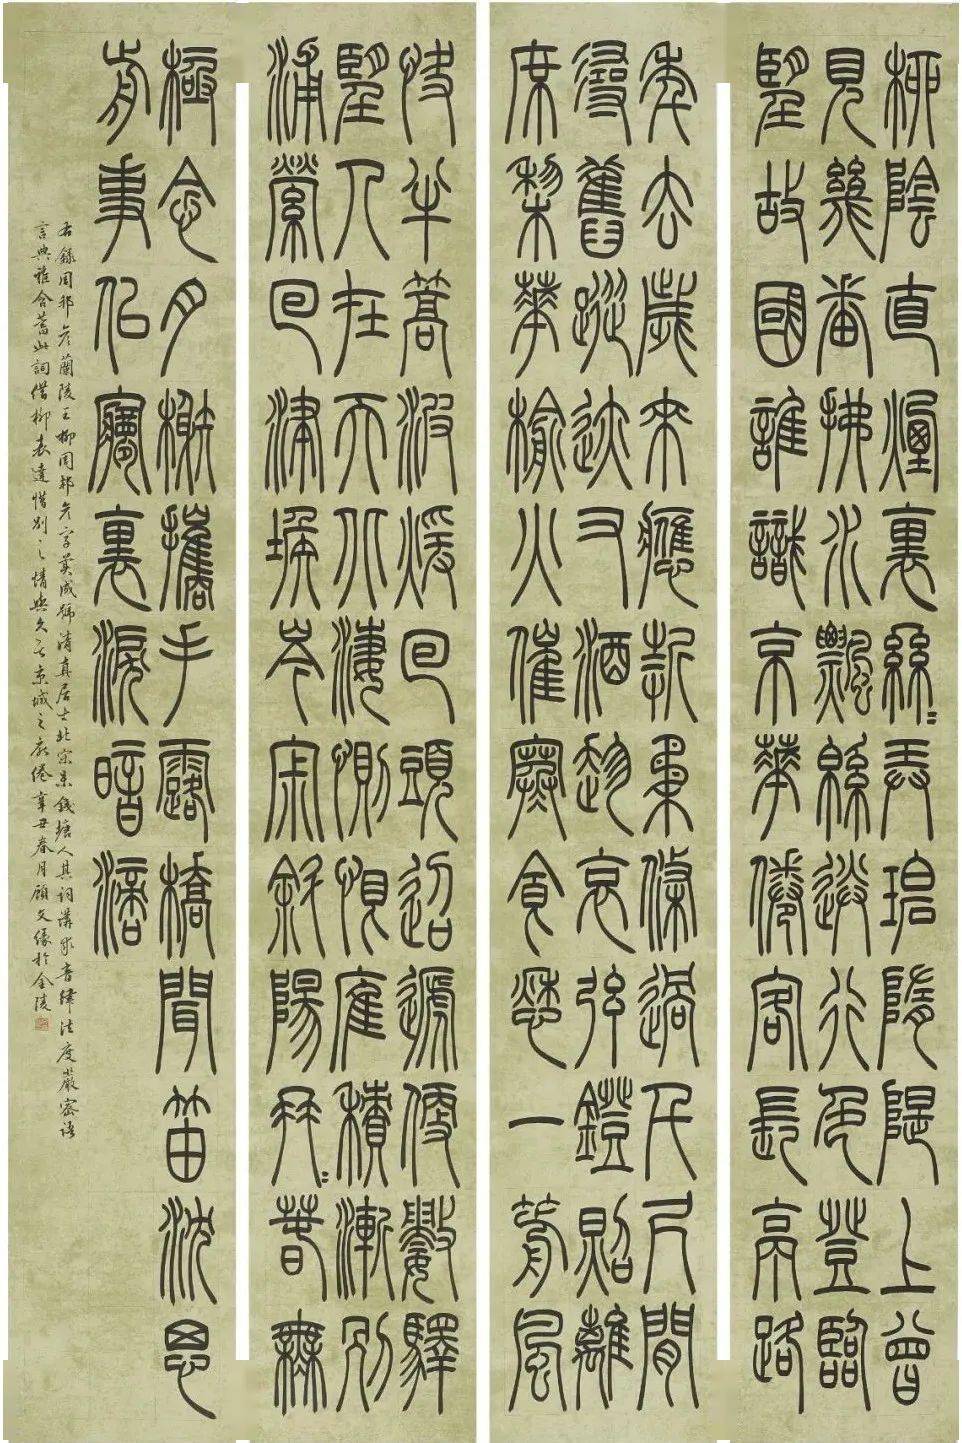 柳陰直煙裏絲〻弄碧隋隄上曾
見幾番拂水飄綿送行色登臨
望故國誰識京華倦客長亭路
年去歲來應折柔條過千尺閒
尋舊蹤迹又酒趁哀弦鐙照離
席梨華榆火催寒食愁一箭風
快半篙波煖回頭迢遞便數驛
望人在天北淒惻恨堆積漸別
浦縈回津堠岑寂斜陽冉〻春無
極念月榭攜手露橋聞笛沈思
前事似夢裏淚暗滴
右錄周邦彥蘭陵王柳周邦彥字美成號清真居士北宋末錢塘人其詞講求音律法度嚴密語
言典雅含蓄此詞借柳表達惜別之情與久客京城之厭倦辛丑春月顧文於金陵